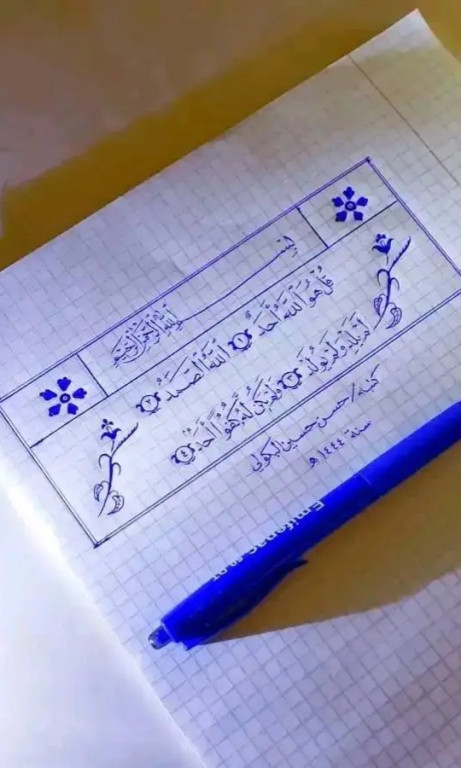 بِسْمِ اللَّهِ الرَّحْمَٰنِ الرَّحِيمِ
قُلْ هُوَ اللَّهُ أَحَدٌ ١ اللَّهُ الصَّمَدُ ٢
لَمْ يَلِدْ وَلَمْ يُولَدْ ٣ وَلَمْ يَكُن لَّهُ كُفُوًا أَحَدٌ ٤
كتبه / حسن حسين
سنة ١٤٤٤ هـ